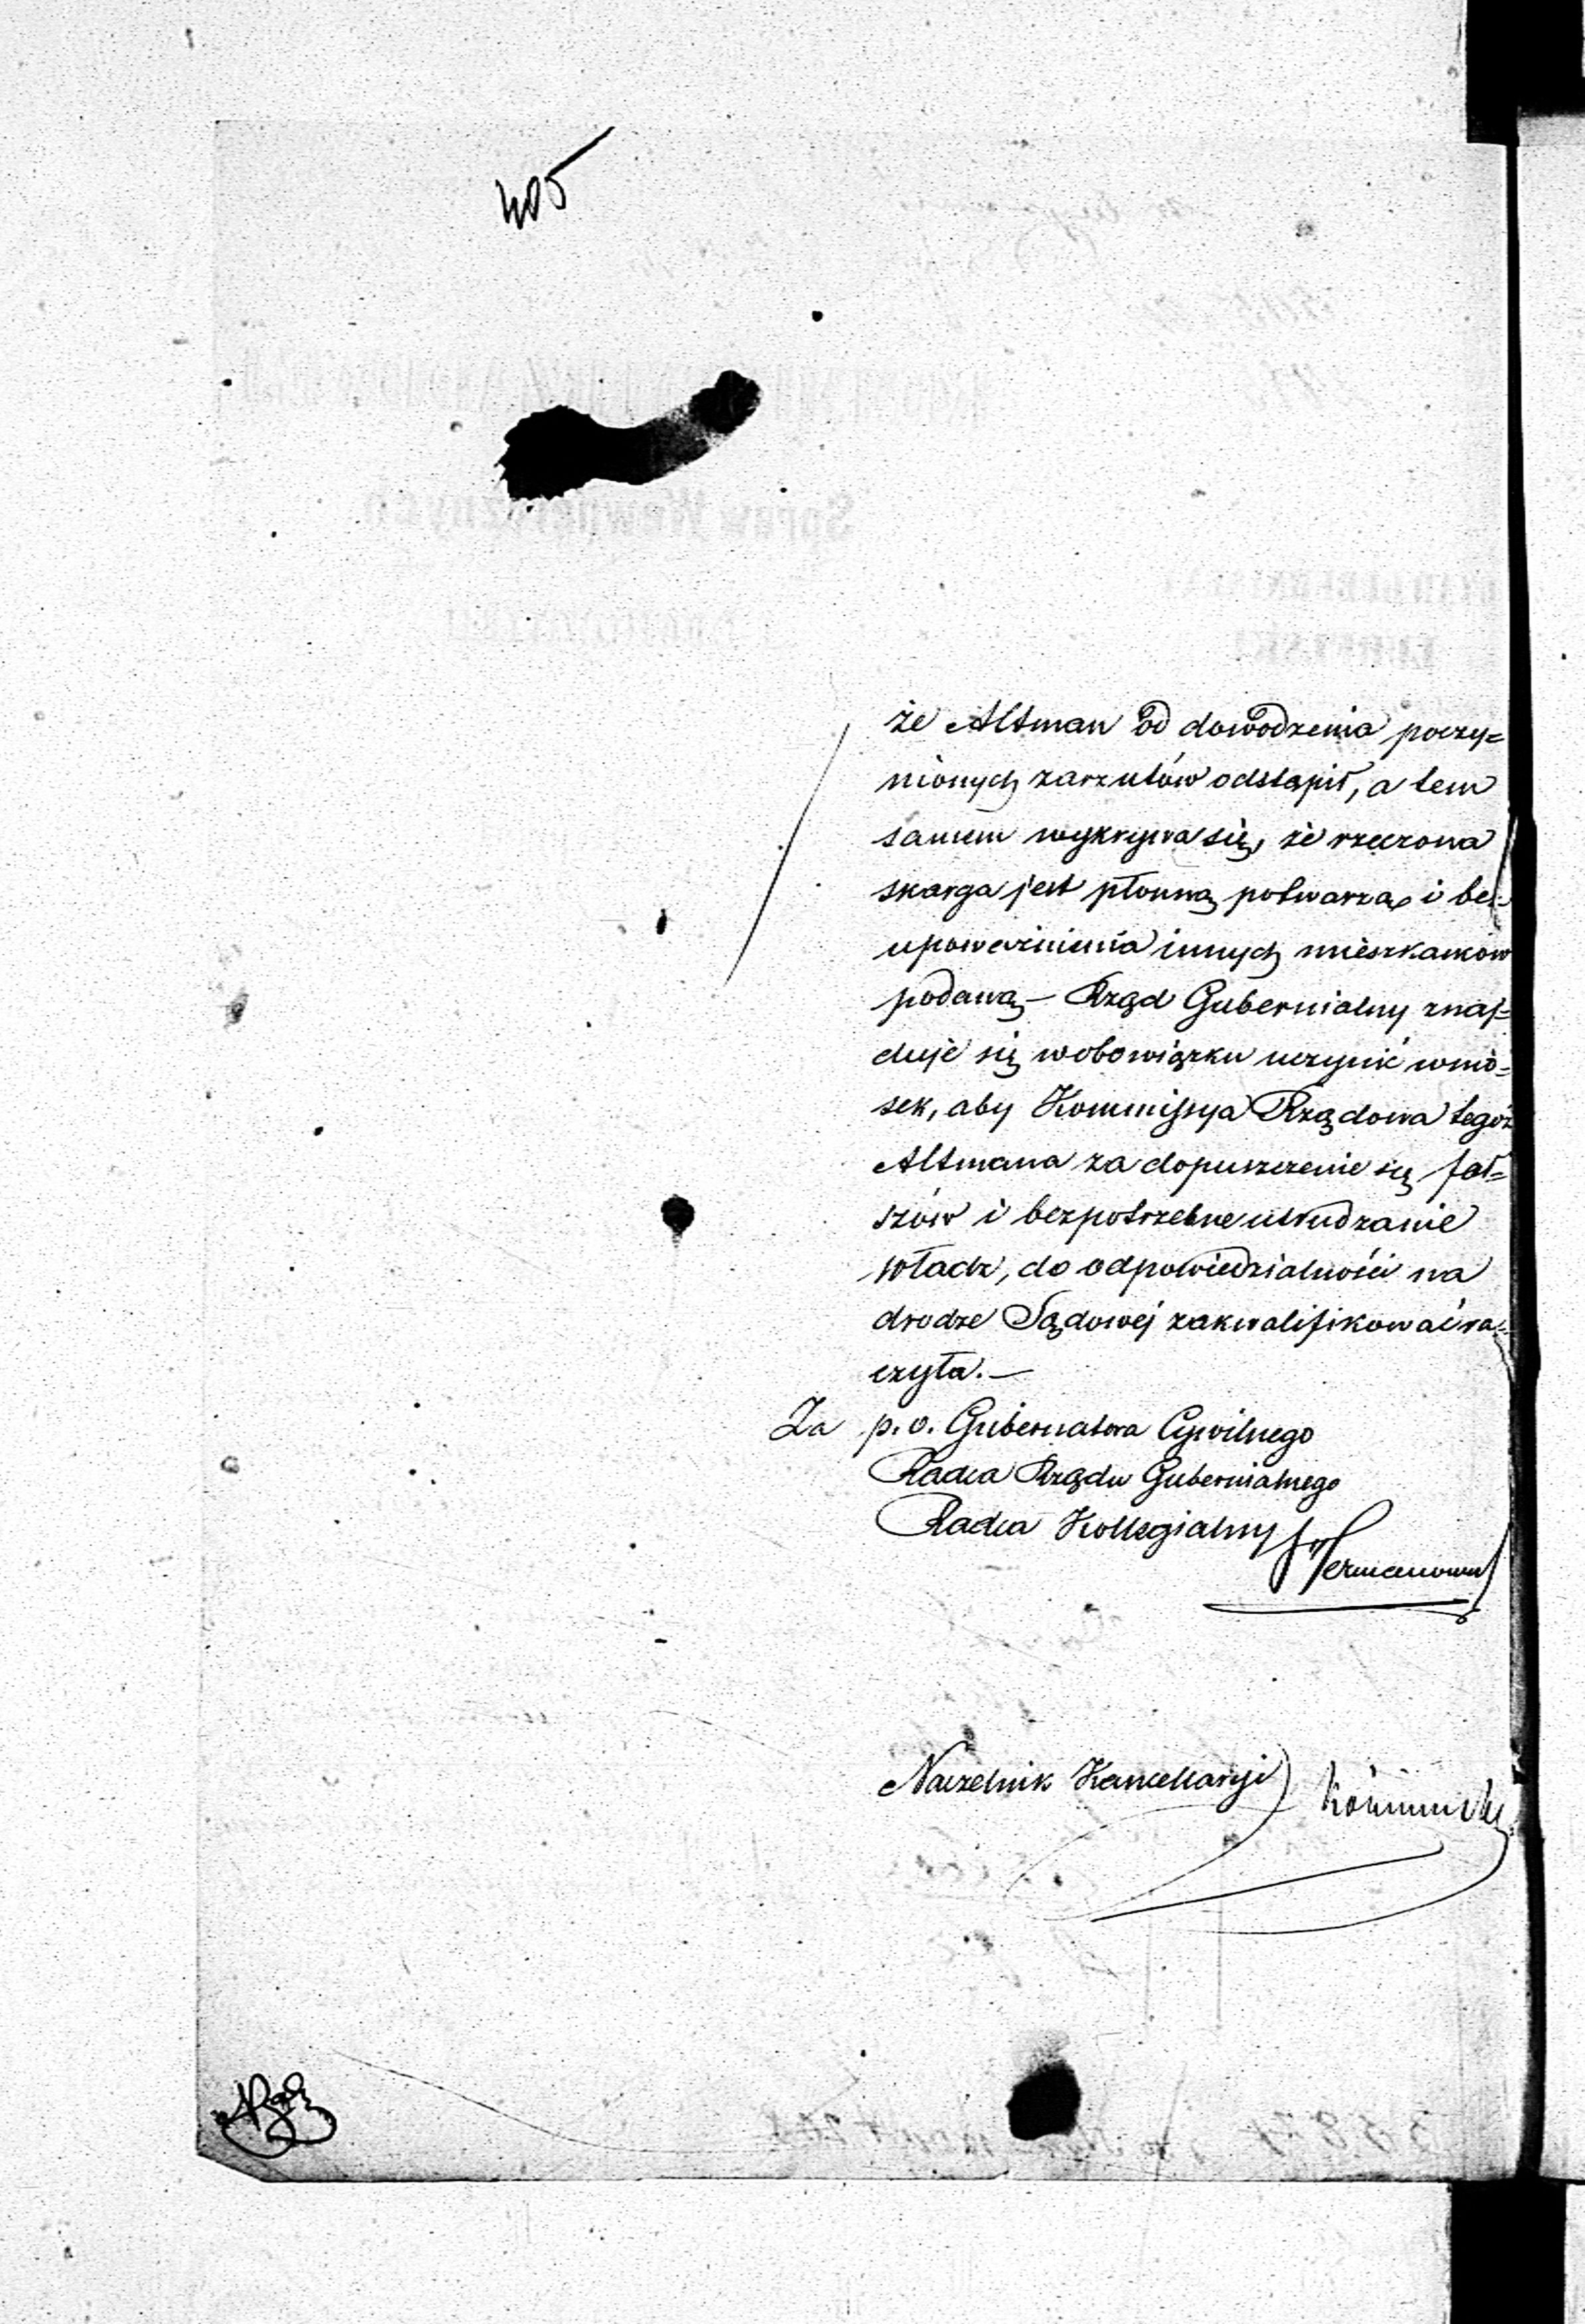 405
że Altman od dowodzenia poczy=
nionych zarzutów odstąpił, a tem
samem wykrywa się, że rzeczona
skarga jest płonną potwarzą i bez
upoważnienia innych mieszkańców
podaną — Rząd Gubernialny znaj=
duje się w obowiązku uczynić wnio=
sek, aby Kommissya Rządowa tegoż
Altmana za dopuszczenie się fał=
szów i bezpotrzebne utrudzanie
władz, do odpowiedzialności na
drodze Sądowej zakwalifikować ra=
czyła. —
Za p. o. Gubernatora Cywilnego
Radca Rządu Gubernialnego
Radca Kollegialny
Naczelnik Kancellaryi